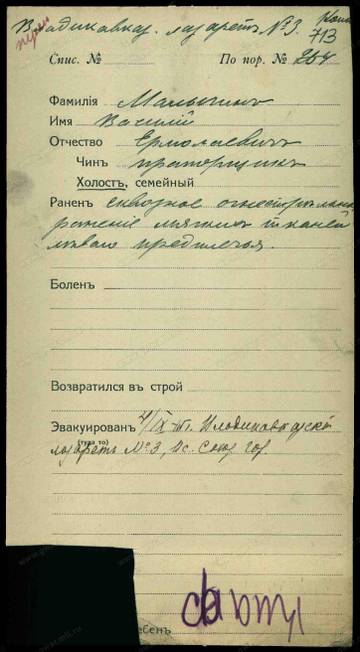 Владикавказ. лазаретъ № 3.
713
Спис. № По пор. № 264
Фамилія Малыгинъ
Имя Василій
Отчество Ермолаевичъ
Чинъ прапорщикъ
Холостъ, семейный
Раненъ сквозное огнестрѣльн.
ранение мягкихъ тканей
лѣваго предплечья.
Боленъ
Возвратился въ строй
Эвакуированъ 4/IX Владикавказскій
(куда то)
лазаретъ № 3, Вс. Союз. гор.
есенъ